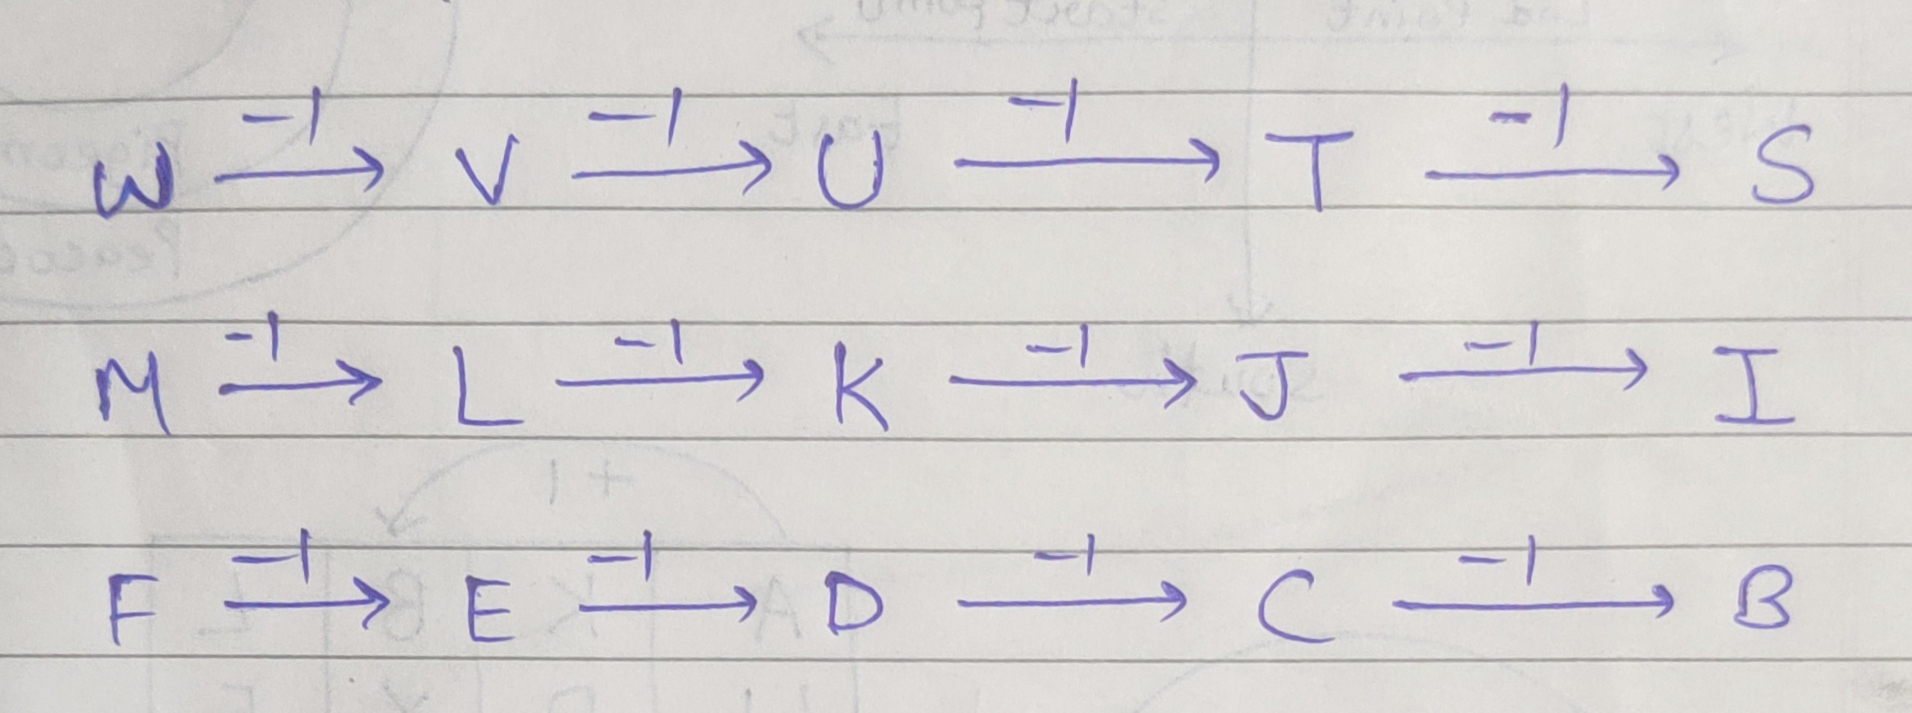 W -1→ V -1→ U -1→ T -1→ S
M -1→ L -1→ K -1→ J -1→ I
F -1→ E -1→ D -1→ C -1→ B